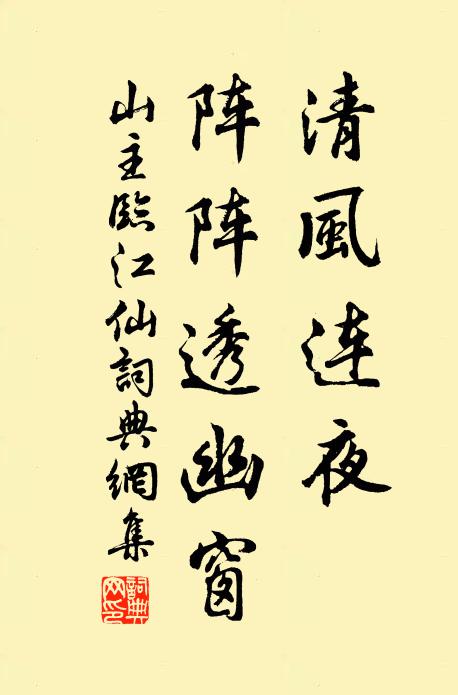 清風連夜
阵阵透幽窗
山主臨江仙詞典網集
詞典网印